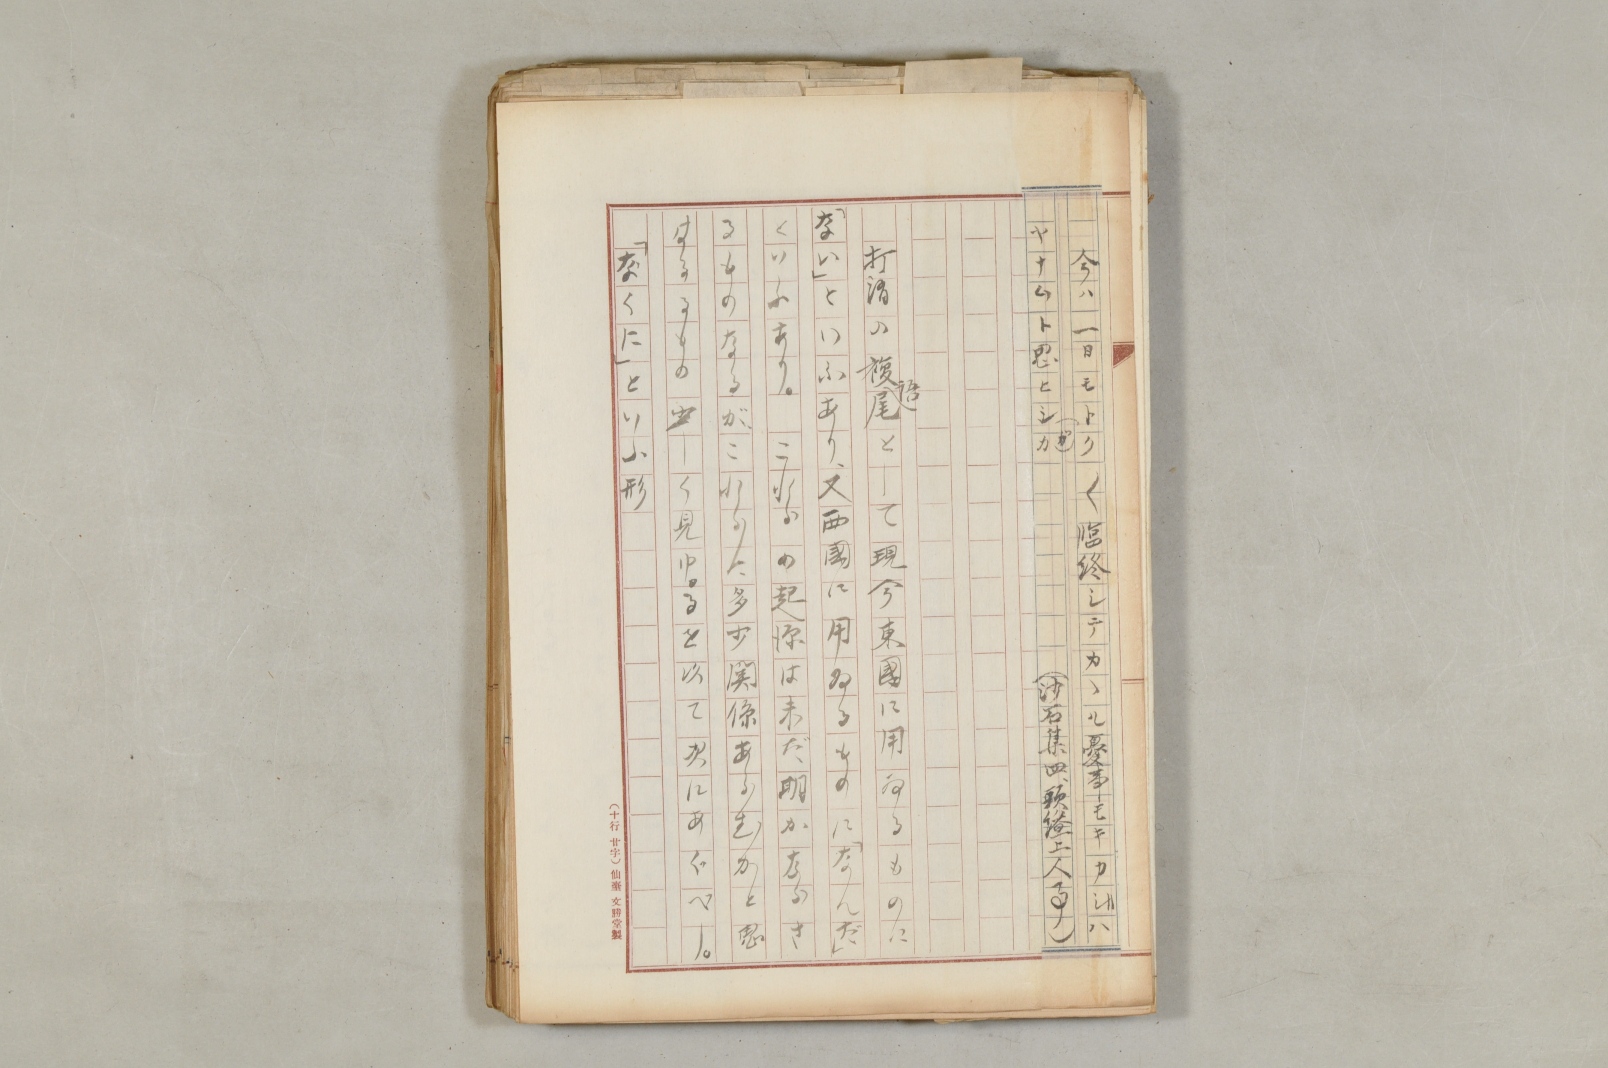 今ハ一日モトク〱臨終シテカヽル憂事モキカシハ
ヤナムト思ヒシカ
(沙石集四、頸縊上人事)
打消の複語尾として現今東國に用ゐるものに
「ない」といふあり、又西國に用ゐるものに「なんだ」
といふあり。これらの起源は未だ明かならざ
るものなるが、これらに多少関係あらむかと思
はるるもの少しく見ゆるを以て次にあぐべし。
「なくに」といふ形
(十行 廿字) 仙臺 文勝堂製